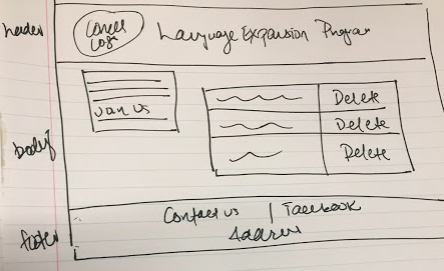 header
Cornell
Logo
Language Expansion Program
Join US
Delete
Delete
Delete
body
Contact us | Facebook
Address
footer